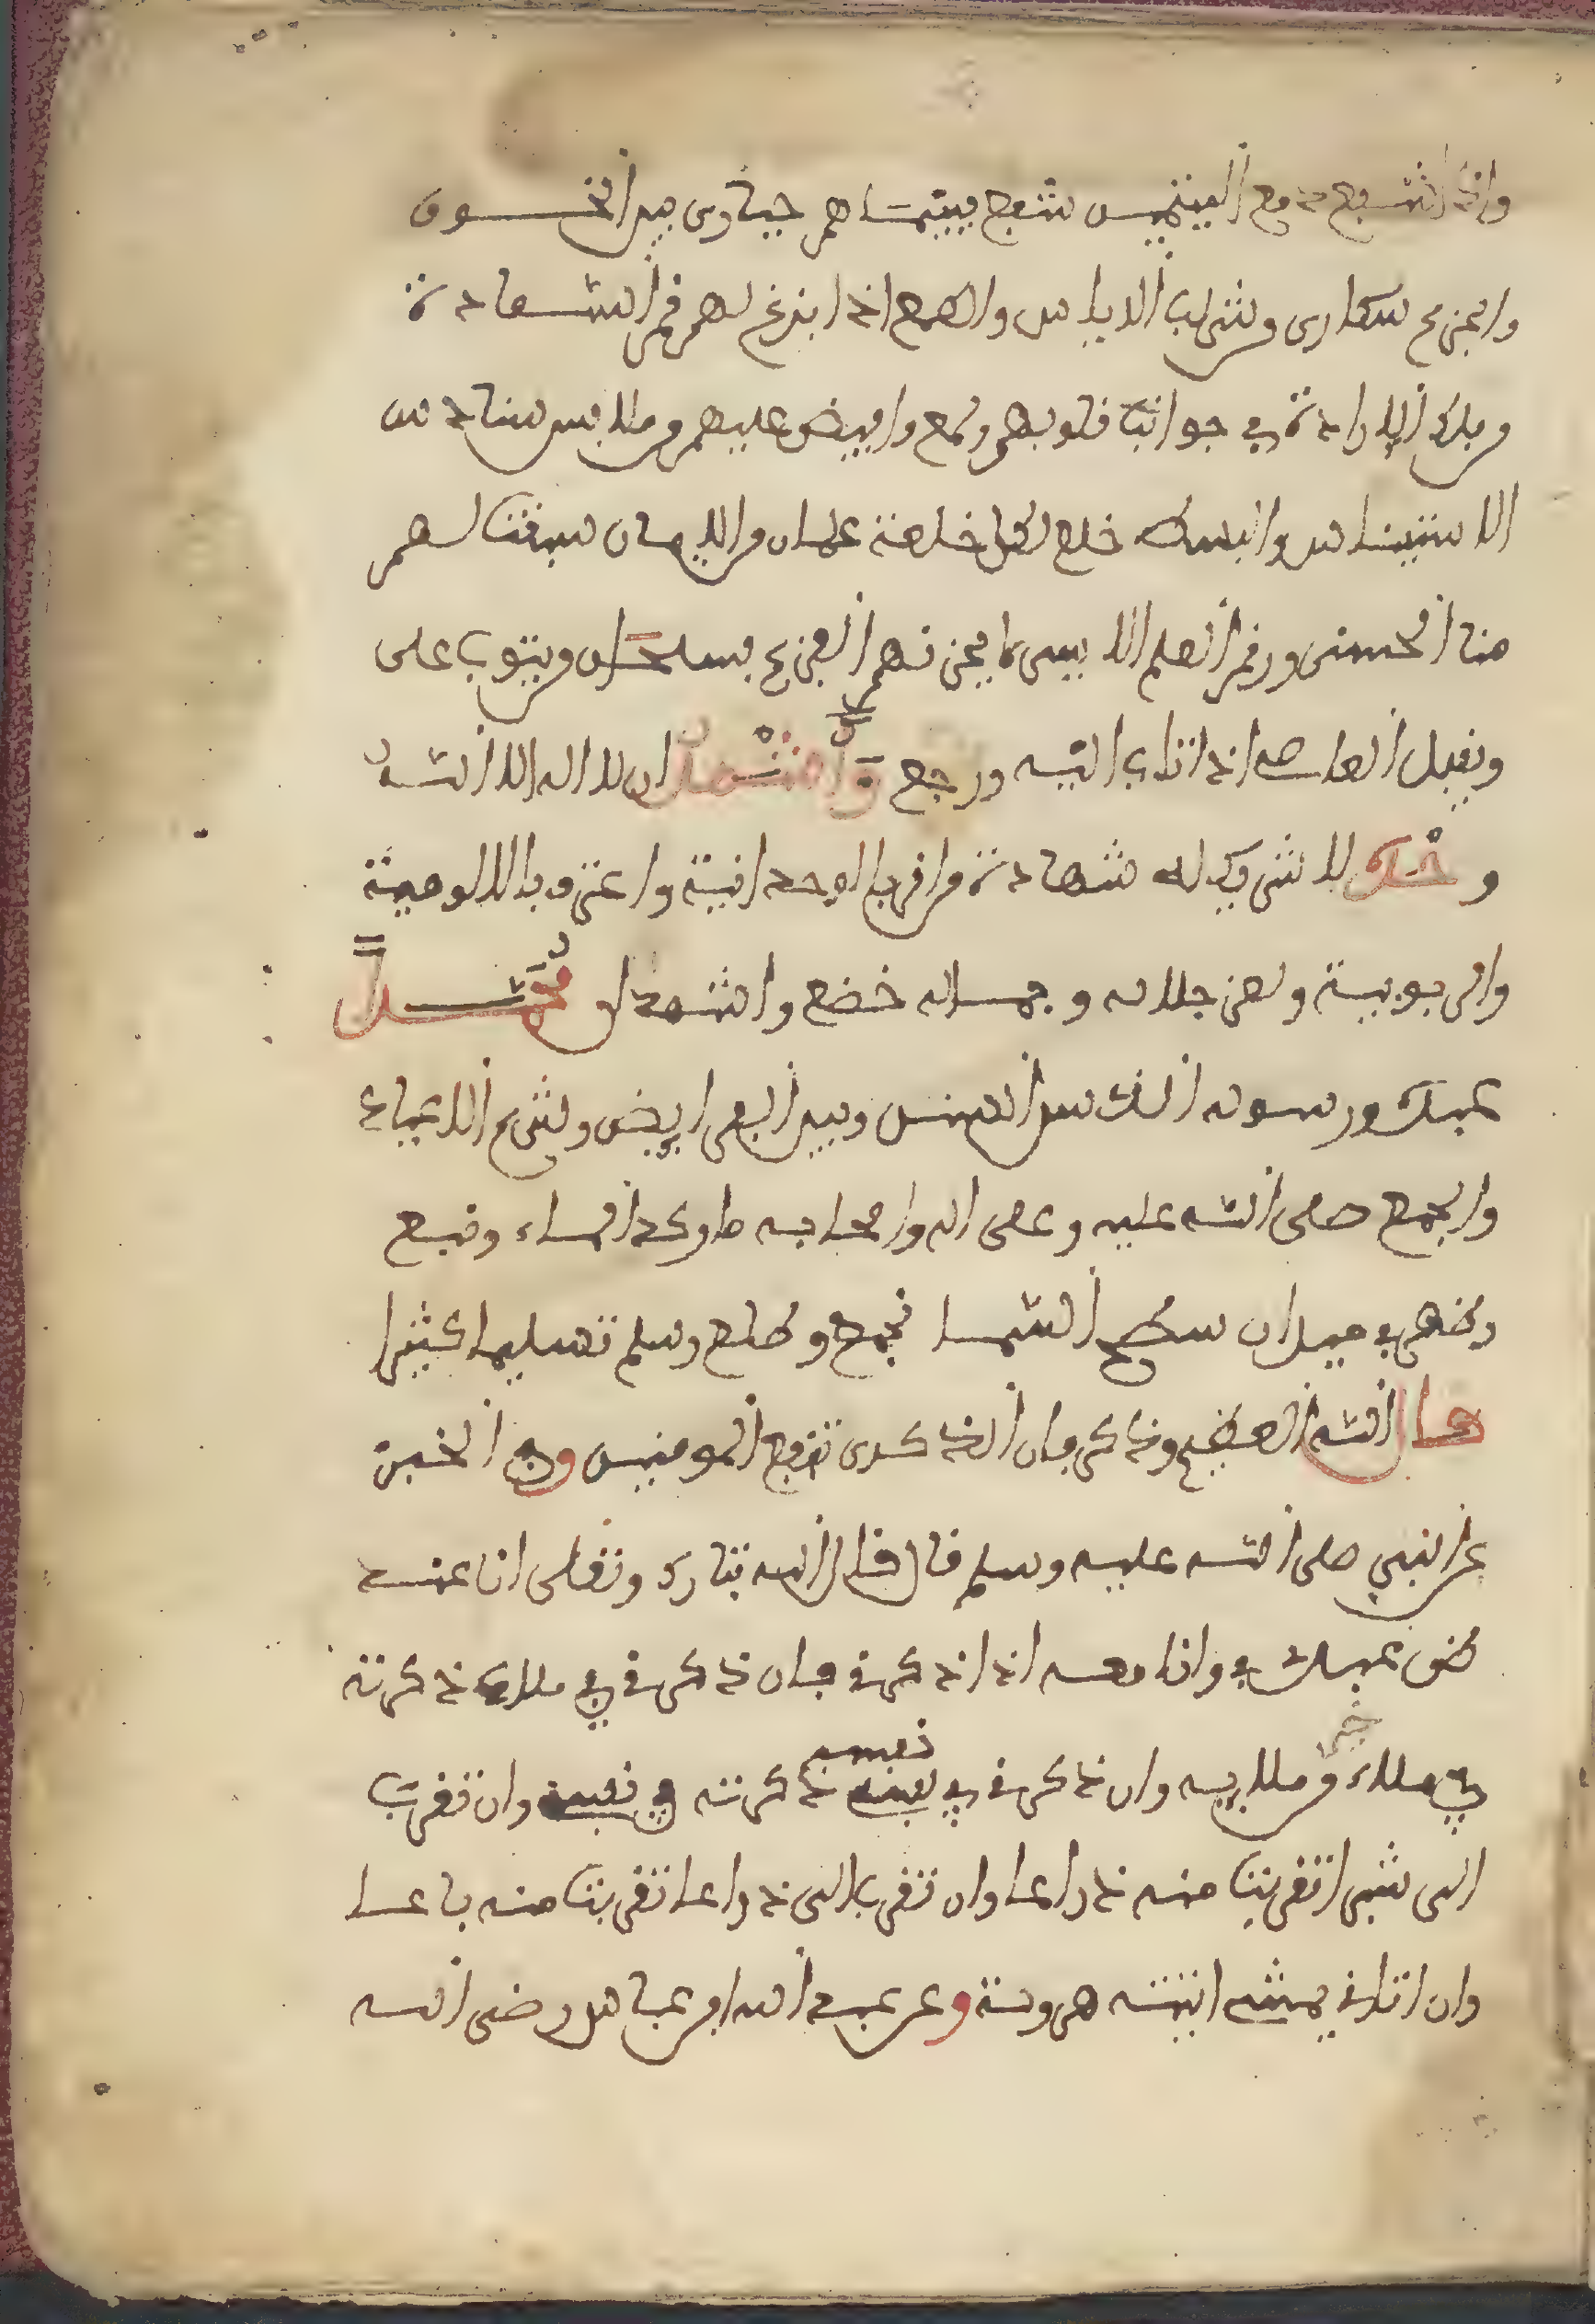 واذا اشبع دمع اليتيم شبع بينما هم حيارى بين الخوف
والجزع سكارى من شراب الاياس والطمع اذا بزغ لهم قمر السعادة
من فلك الارادة في جوانب قلوبهم ولمع وافيض عليهم من ملابس سنادس
الاستيناس والبسط خلع لكل خلعة علمان من الايمان سبقت لهم
منا الحسنى ورقم العلم الايسر لا يحزنهم الفزع فسبحان من يتوب على
ويقبل العاصي اذا تاب اليه ورجع واشهد ان لا اله الا الله
وحده لا شريك له شهادة من اقر بالوحدانية واعترف بالالوهية
والربوبية ولعز جلاله وجماله خضع واشهد ان محمدا
عبده ورسوله الذي سن السنن وبين الفرايض وشرع الاعياد
والجمع صلى الله عليه وعلى اله واصحابه ما وكد الماء ونبع
وظهر في ميدان سطح السما نجم وطلع وسلم تسليما كثيرا
قال الله العظيم وذكر فان الذكرى تنفع المومنين وفي الخبر
عن النبي صلى الله عليه وسلم قال قال الله تبارك وتعلى انا عند
ظن عبدي بي وانا معه اذا ذكرني فان ذكرني في ملا ذكرته
في ملاء خير من ملايه وان ذكرني في نفسه ذكرته في نفسي وان تقرب
الي شبرا تقربت منه ذراعا وان تقرب الي ذراعا تقربت منه باعا
وان اتاني يمشي اتيته هرولة وعن عبد الله ابن عباس رضي الله